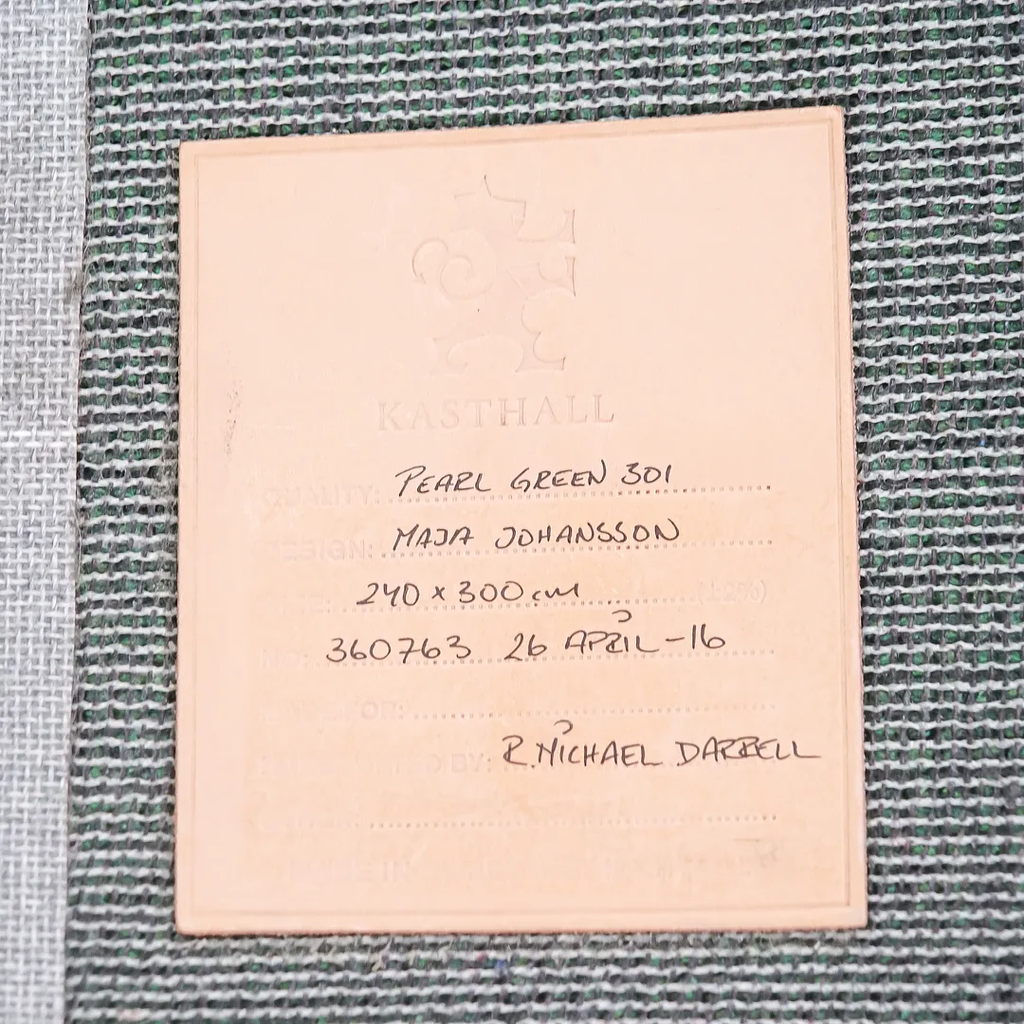 KASTHALL
QUALITY: PEARL GREEN 301
DESIGN: MAJA JOHANSSON
240 x 300 cm (±2%)
360763 26 APRIL -16
FOR:
BY: R. MICHAEL DARRELL
IN